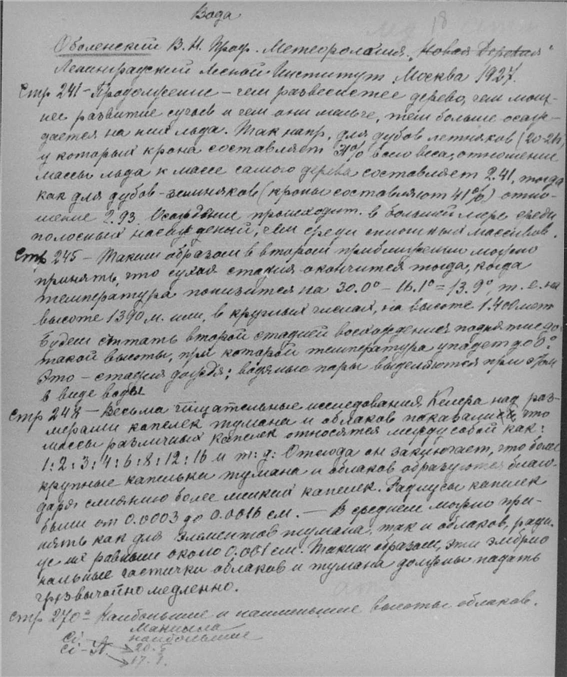 Вода
18
Оболенский В. Н. Проф. Метеорология „Новая Деревня"
Ленинградский Лесной Институт Москва 1927.
Стр 241 – Продолжение – чем развесистее дерево, чем мощ-
нее развитие сучьев и чем они тоньше, тем больше осаж-
дается на них льда. Так напр. для дубов летняков (20-26)
у которых крона составляет 31% всего веса, отношение
массы льда к массе самого дерева составляет 2.41, тогда
как для дубов-зимняков (кроны составляют 41%) отно-
шение 2.93. Осаждение происходит в большей мере среди
полосных насаждений, чем среди сплошных массивов.
Стр 245 – Таким образом в второй приближении можно
принять, что сухая стадия окончится тогда, когда
температура понизится на 30.0° – 16.1° = 13.9° т. е. на
высоте 1390 м. или, в круглых числах, на высоте 1400 мет
Будем считать второй стадией восхождения поднятие до
такой высоты, при которой температура упадет до 0°
Это – стадия дождя; водяные пары выделяются при этом
в виде воды
Стр 248 – Весьма тщательные исследования Келера над раз-
мерами капелек тумана и облаков показали, что
массы различных капелек относятся между собой как:
1:2:3:4:6:8:12:16 и т: д: Отсюда он заключает, что более
крупные капельки тумана и облаков образуются благо-
даря слиянию более мелких капелек. Радиусы капелек
были от 0.0003 до 0.0016 см. — В среднем можно при-
нять как для элементов тумана, так и облаков, ради-
ус их равным около 0.001 см. Таким образом, эти эмбрио
нальные частички облаков и тумана должны падать
чрезвычайно медленно.
Стр 270 – Наибольшие и наименьшие высоты облаков.
Манилла
наибольшие
Ci — 20.5
Ci – St → 17.